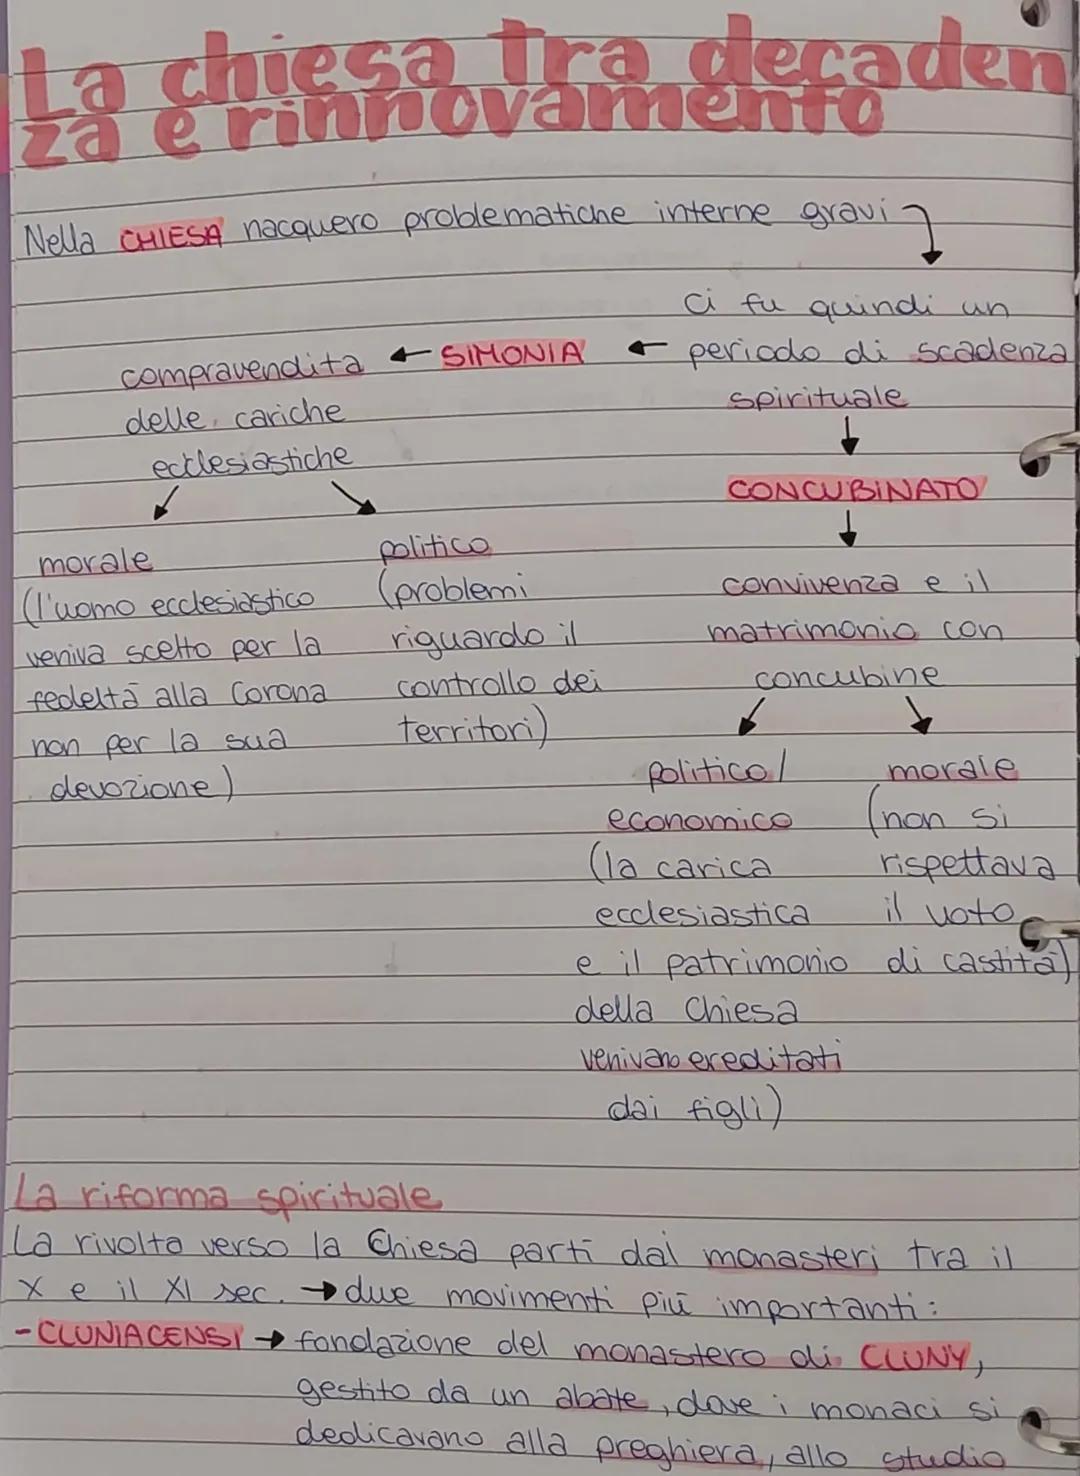 La chiesa tra decaden
za e rinnovamento
Nella CHIESA nacquero problematiche interne gravi
ci fu quindi un
periodo di scadenza
spirituale
← SIMONIA ←
compravendita
delle cariche
ecclesiastiche
morale
(l'uomo ecclesiastico
veniva scelto per la
fedeltà alla Corona
non per la sua
devozione)
politico
(problemi
riguardo il
controllo dei
territori)
CONCUBINATO
convivenza e il
matrimonio con
concubine
politico/
economico
(la carica
ecclesiastica
e il patrimonio
della Chiesa
venivano ereditati
dai figli)
morale
(non si
rispettava
il voto
di castità)
La riforma spirituale
La rivolta verso la Chiesa partì dai monasteri tra il
X e il XI sec. → due movimenti più importanti:
- CLUNIACENSI → fondazione del monastero di CLUNY,
gestito da un abate, dove i monaci si
dedicavano alla preghiera, allo studio